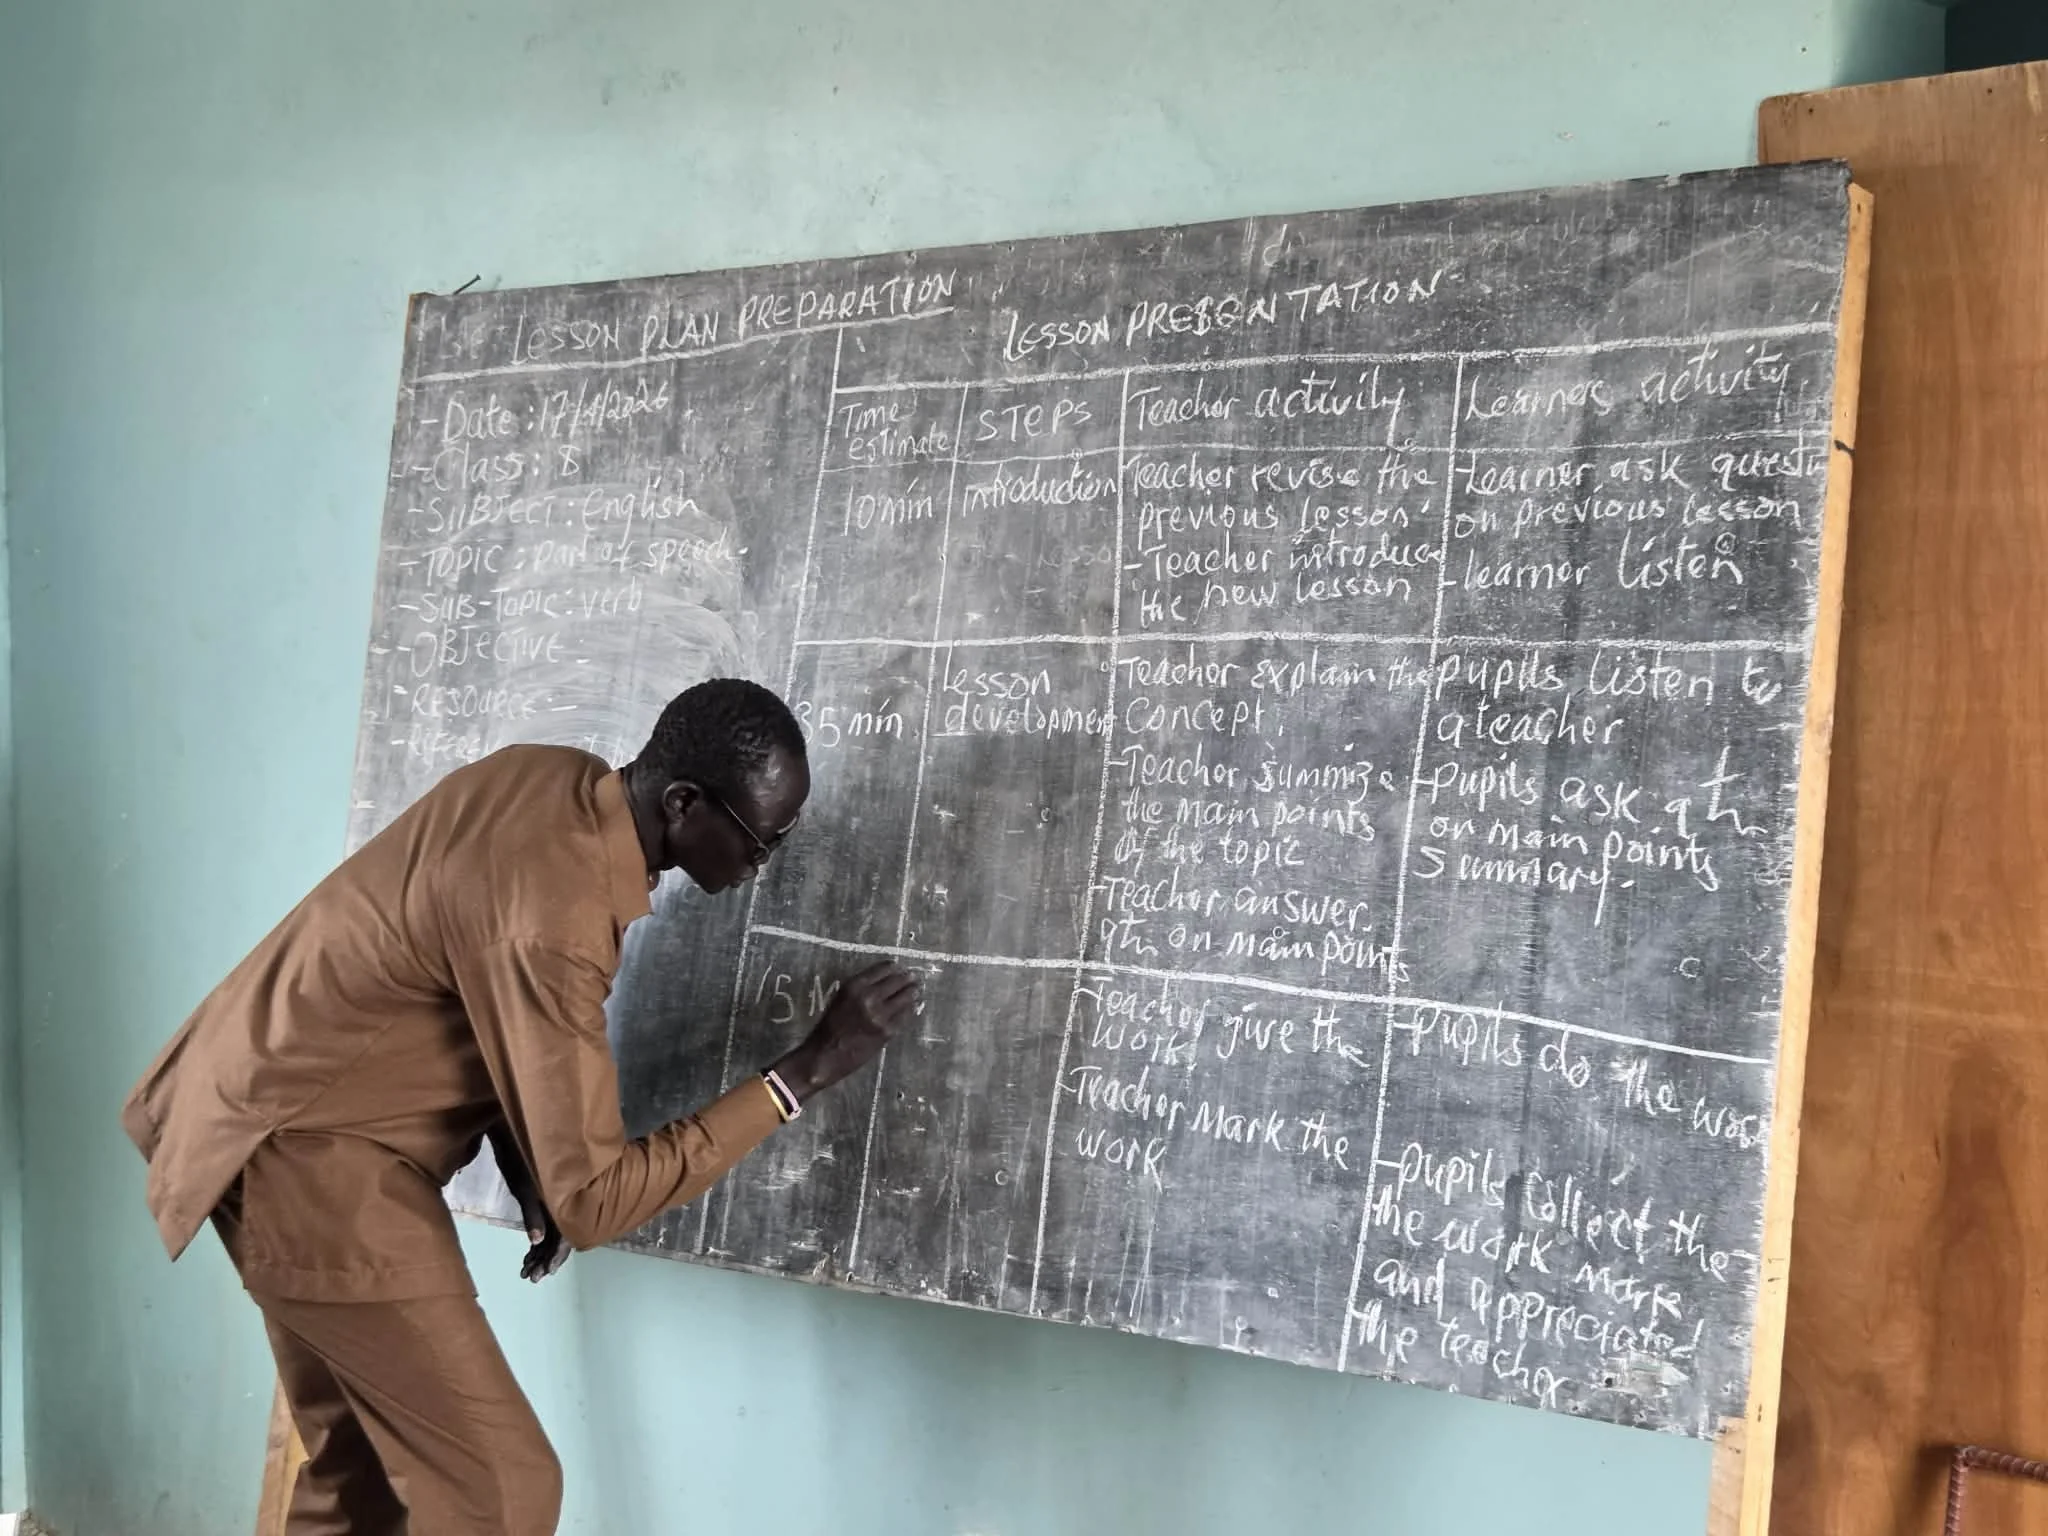 LESSON PLAN PREPARATION
- Date: 17/4/2026
- Class: 8
- SUBJECT: English
- TOPIC: part of speech.
- SUB-TOPIC: verb
- OBJECTIVE:
- RESOURCE:-
LESSON PRESENTATION
Time
estimate
STEPS
Teacher activity
Learner activity
10 min
introduction
Teacher revise the
previous lesson
- Teacher introduce
the new lesson
- Learner ask
on previous lesson
- learner listen
35 min
lesson
development
Teacher explain the
concept.
- Teacher summize
the main points
of the topic
- Teacher answer
qtn on main points
pupils listen to
a teacher
- Pupils ask qtn
on main points
Summary.
15 M
- Teacher give the
work
- Teacher Mark the
work
- Pupils do the work
- pupils collect the
the work mark
and appreciated
the teacher